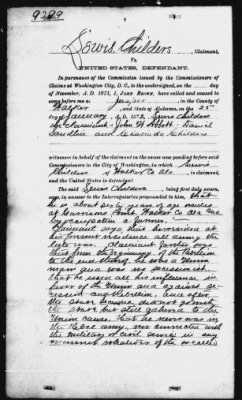 9299
Lewis Childers, Claimant,
Vs.
UNITED STATES, DEFENDANT.
In pursuance of the Commission issued by the Commissioners of
Claims at Washington City, D. C., to the undersigned, on the day
of November, A. D. 1871, I, JOHN BROWN, have called and caused to
come before me at Jasper in the County of
Walker and State of Alabama, on the 25th
day of January A.D. 1872, Lewis Childers
the claimant John W. Abbott, Daniel
and Childers
witnesses in behalf of the claimant on the cause now pending before said
Commissioners in the City of Washington, in which Lewis
Childers of Walker Co Ala. is claimant,
and the United States is defendant.
The said Lewis Childers, being first duly sworn,
says, in answer to the Interrogatories propounded to him: That
he is about sixty years of age resides
at Point Walker Co Ala and
by occupation a farmer.
Claimant says that he resided at
his present residence all during the
late war. Claimant further says
that from the beginning of the Rebellion
to the end thereof, he was a Union
man and was no secessionist
that he used all his influence in
favor of the Union and against
and Rebellion. and after
the State Seceded did not go with
the State but still adhered to the
Union cause. That he never was in
the Rebel army, nor connected with
the military or civil service in any
manner whatever of the so called